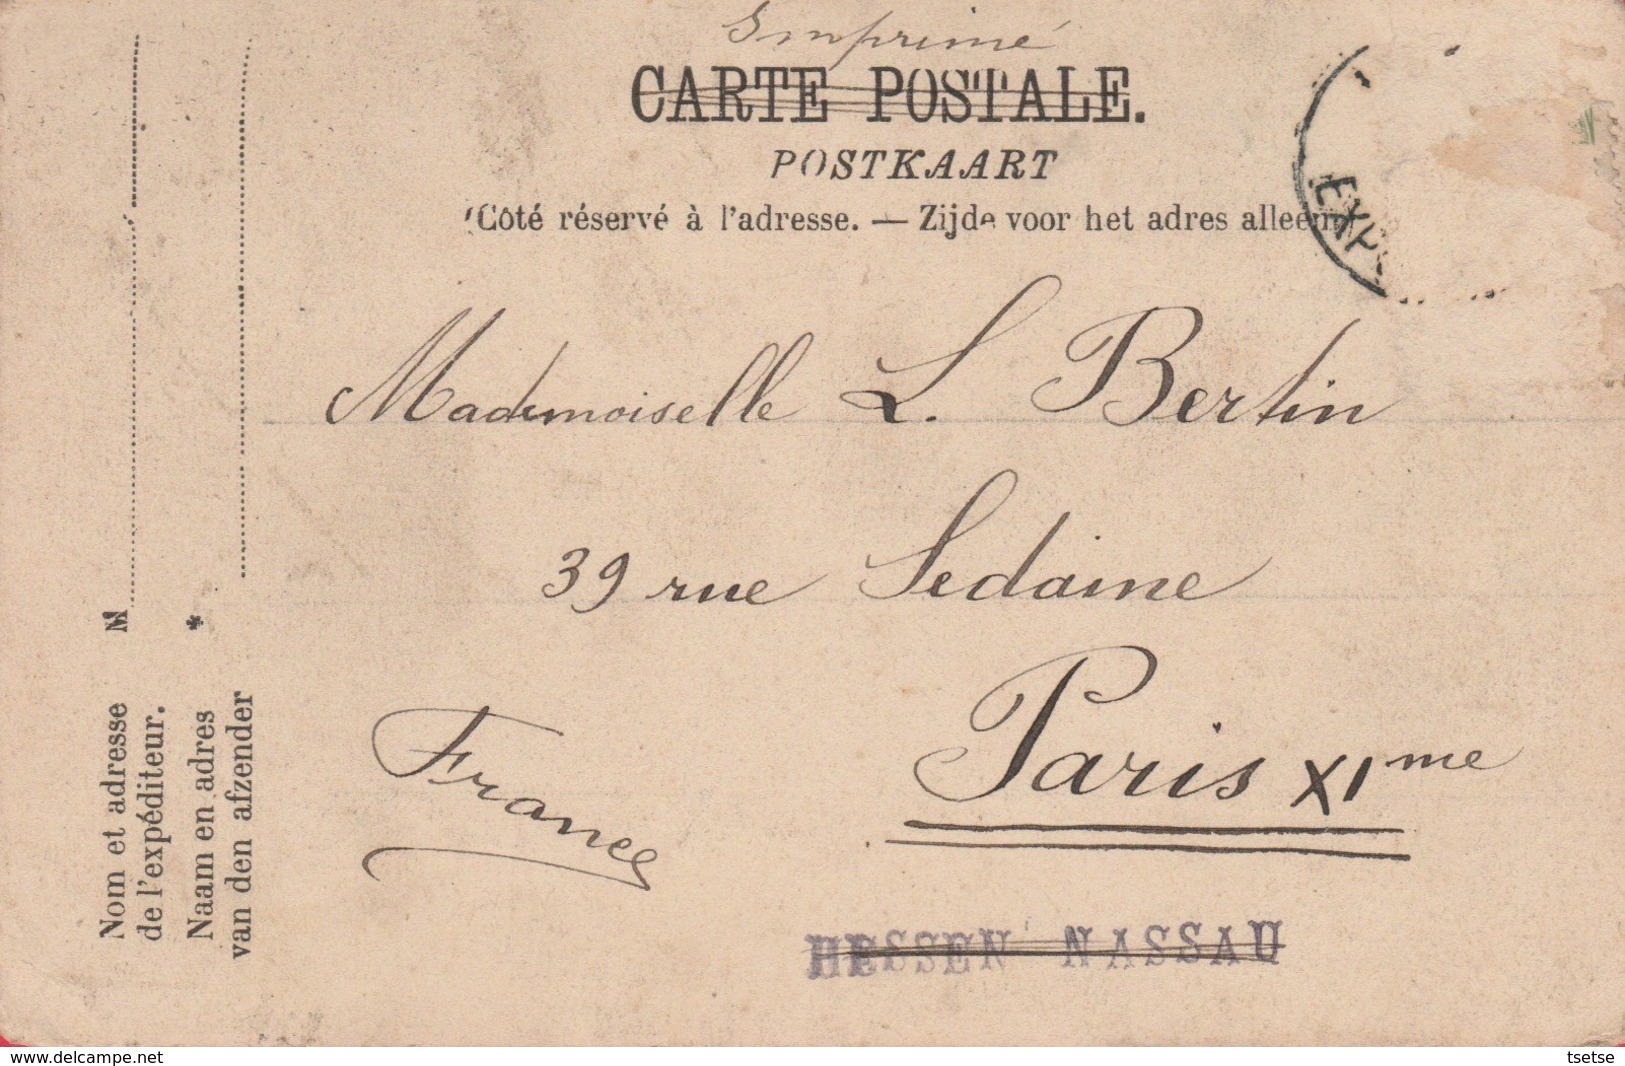 Imprimé
CARTE POSTALE.
POSTKAART
Côté réservé à l'adresse. — Zijde voor het adres alleen
EXP
Mademoiselle L. Bertin
39 rue Sedaine
Paris XIme
France
HESSEN NASSAU
M
Nom et adresse
de l'expéditeur.
Naam en adres
van den afzender
www.delcampe.net
tsetse